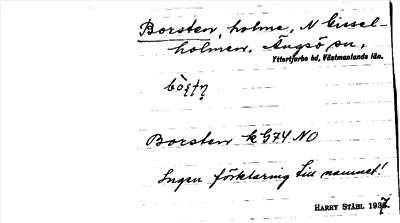 Borsten, holme, N Gissel-
holmen, Ängsö sn,
Yttertjurbo hd, Västmanlands län.
Borsten k G74 NO
Ingen förklaring till namnet!
HARRY STÅHL 1937.